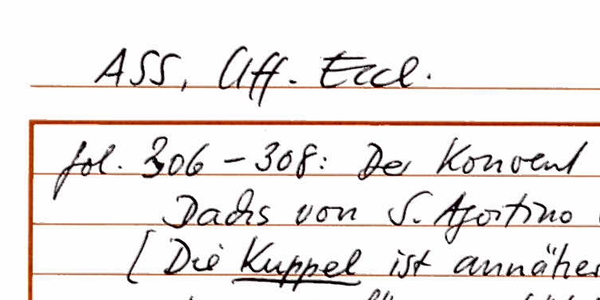 ASS, Uff. Eccl.
fol. 306 - 308: Der Konvent
Dachs von S. Agostino
[Die Kuppel ist annäher